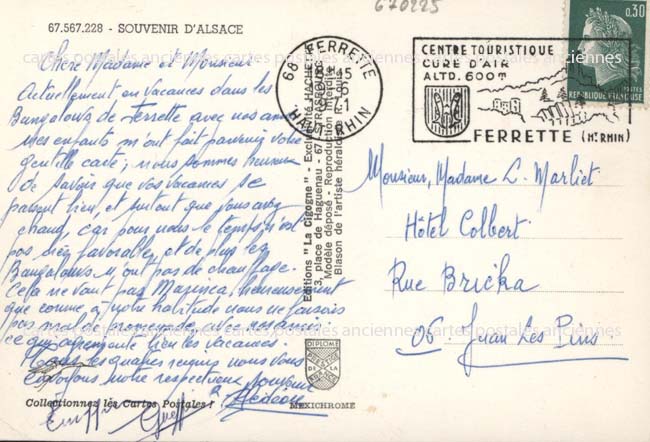 670225
67.567.228 - SOUVENIR D'ALSACE
Chère Madame et Monsieur
Actuellement en vacances dans les
Bungalows de Ferrette avec nos amis
mes enfants m'ont fait parvenir votre
gentille carte; nous sommes heureux
de savoir que vos vacances se
passent bien, et surtout que vous avez
chaud, car pour nous le temps n'est
pas très favorable, et de plus les
Bungalows n'ont pas de chauffage.
Cela ne vaut pas heureusement
que comme à notre habitude nous ne faisons
pas mal de promenades avec
ce qui agrémente bien les vacances.
les quatres réunis nous vous
envoyons notre respectueux souvenir
Collectionnez les Cartes Postales !
Editions "La Cigogne" - Exclusivité HACHETTE
3, place de Haguenau - 67-STRASBOURG
Modèle déposé - Reproduction interdite
Blason de l'artiste héraldique
DIPLOME
PRESTIGE
DE LA
FRANCE
MEXICHROME
68 FERRETTE
HAUT-RHIN
CENTRE TOURISTIQUE
CURE D'AIR
ALTD. 600m
FERRETTE (Ht RHIN)
0,30
POSTES
REPUBLIQUE FRANÇAISE
Monsieur, Madame L. Marliet
Hôtel Colbert
Rue Bricka
06. Juan Les Pins
cartes postales anciennes cartes postales anciennes cartes postales anciennes